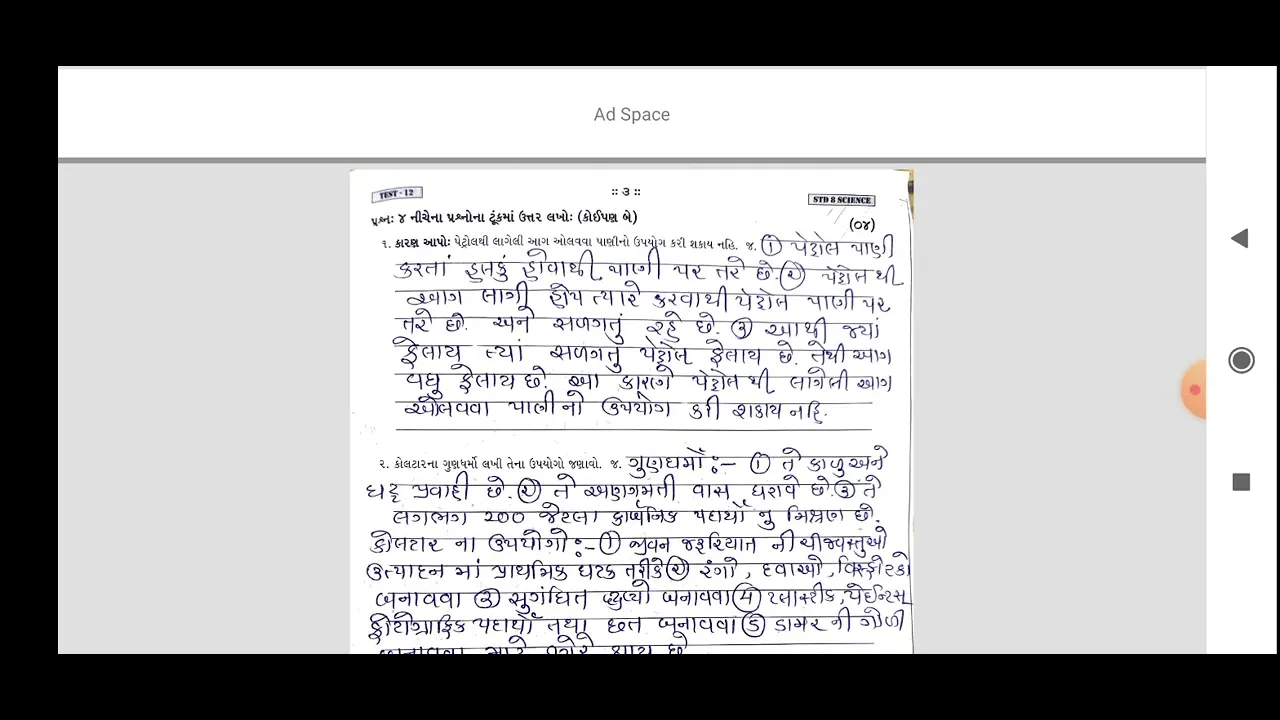 Ad Space
TEST - 12
:: ૩ ::
STD 8 SCIENCE
પ્રશ્ન: ૪ નીચેના પ્રશ્નોના ટૂંકમાં ઉત્તર લખો: (કોઈપણ બે)
(૦૪)
૧. કારણ આપો: પેટ્રોલથી લાગેલી આગ ઓલવવા પાણીનો ઉપયોગ કરી શકાય નહિ. જ. ① પેટ્રોલ પાણી
કરતાં હલકું હોવાથી પાણી પર તરે છે. ② પેટ્રોલ થી
આગ લાગી હોય ત્યારે કરવાથી પેટ્રોલ પાણી પર
તરે છે. અને સળગતું રહે છે. ③ આથી જ્યાં
ફેલાય ત્યાં સળગતુ પેટ્રોલ ફેલાય છે. તેથી આગ
વધુ ફેલાય છે. આ કારણે પેટ્રોલ થી લાગેલી આગ
ઓલવવા પાણી નો ઉપયોગ કરી શકાય નહિ.
૨. કોલટારના ગુણધર્મો લખી તેના ઉપયોગો જણાવો. જ. ગુણધર્મો :- ① તે કાળુ અને
ઘટ્ટ પ્રવાહી છે. ② તે અણગમતી વાસ ધરાવે છે. ③ તે
લગભગ 200 જેટલા કાર્બનિક પદાર્થો નુ મિશ્રણ છે.
કોલટાર ના ઉપયોગો :- ① જીવન જરૂરિયાત ની ચીજવસ્તુઓ
ઉત્પાદન માં પ્રાથમિક ઘટક તરીકે ② રંગો, દવાઓ, વિસ્ફોટકો
બનાવવા ③ સુગંધિત દ્રવ્યો બનાવવા ④ પ્લાસ્ટીક, પેઈન્ટસ
ફોટોગ્રાફિક પદાર્થો તથા છત બનાવવા ⑤ ડામર ની ગોળી
બનાવવા માટે વગેરે થાય છે